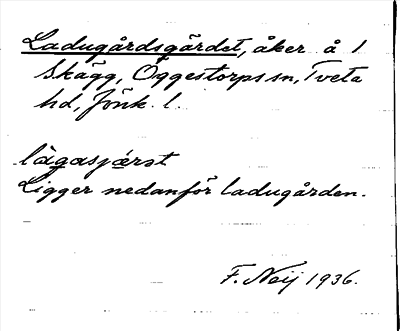 Ladugårdsgärdet, åker å 1
Skägg, Öggestorps sn, Tveta
hd, Jönk. l.
lägasjæ̣rst
Ligger nedanför ladugården.
F. Neij 1936.